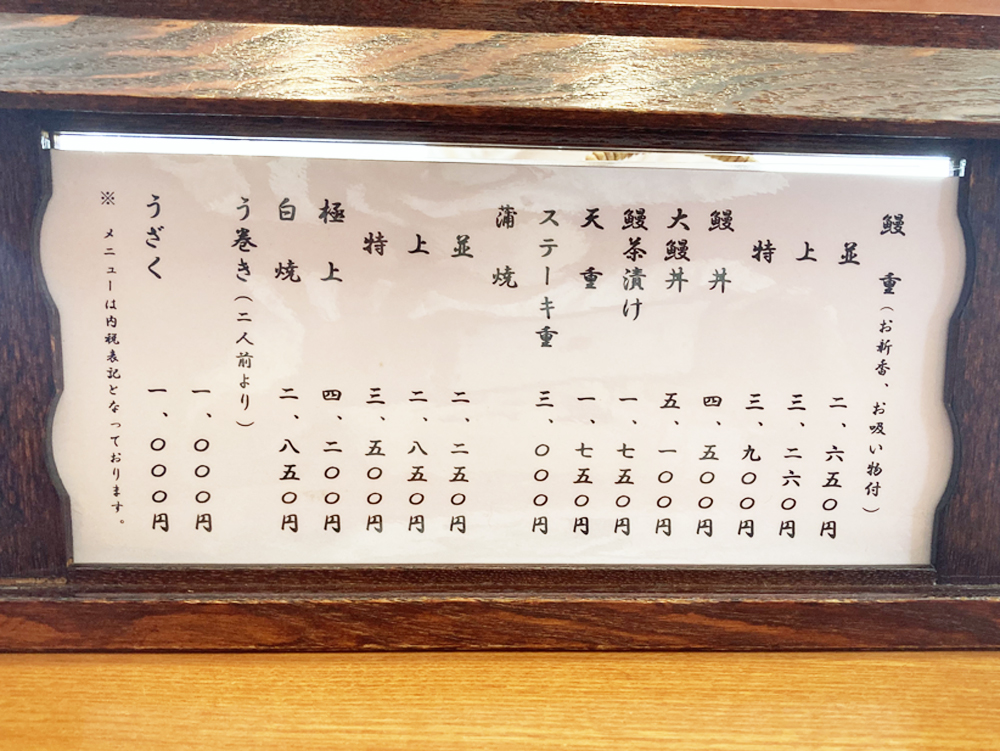 鰻重（お新香、お吸い物付）
並 二、六五〇円
上 三、二六〇円
特 三、九〇〇円
鰻丼 四、五〇〇円
大鰻丼 五、一〇〇円
鰻茶漬け 一、七五〇円
天重 一、七五〇円
ステーキ重 三、〇〇〇円
蒲焼
並 二、二五〇円
上 二、八五〇円
特 三、五〇〇円
極上 四、二〇〇円
白焼 二、八五〇円
う巻き（二人前より） 一、〇〇〇円
うざく 一、〇〇〇円
※ メニューは内税表記となっております。